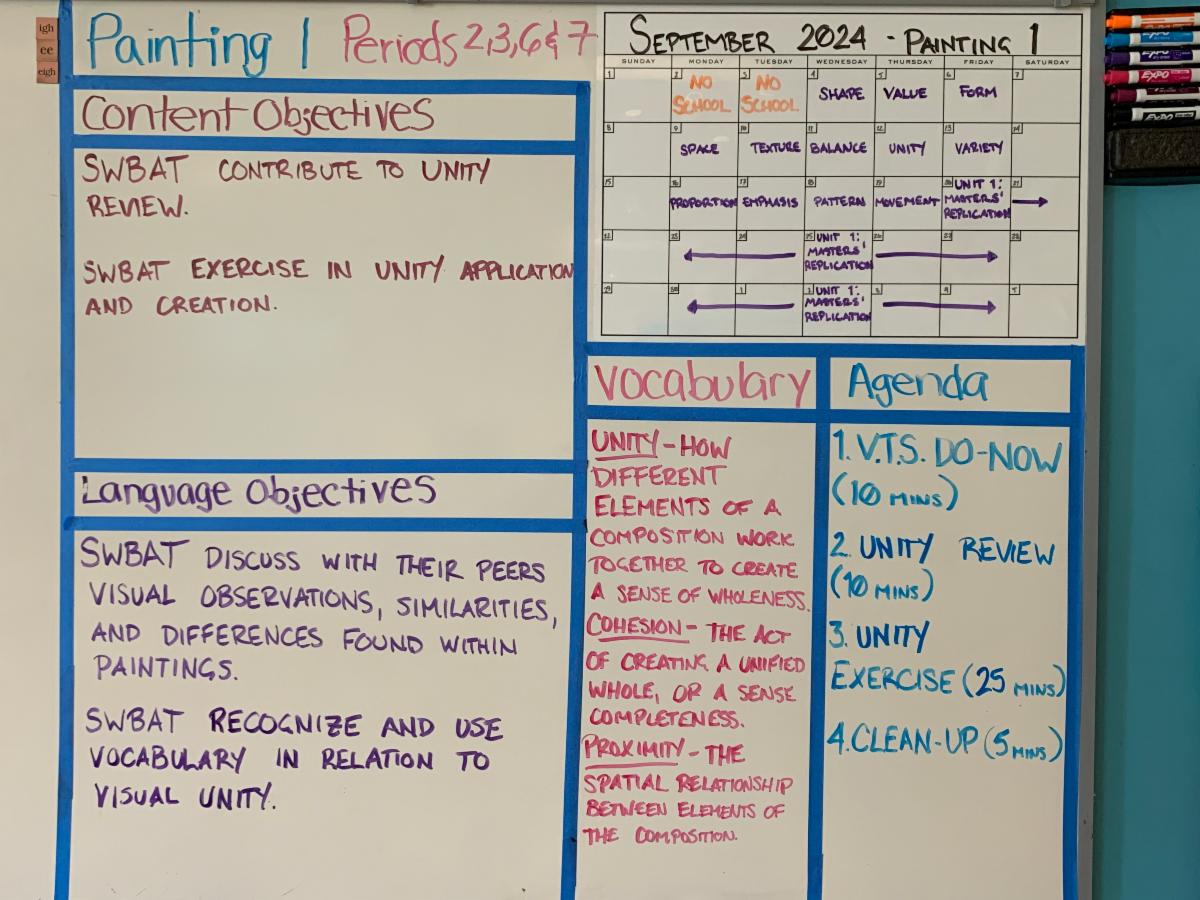 igh
ee
eigh
Painting 1 Periods 2,3,6 & 7
Content Objectives
SWBAT CONTRIBUTE TO UNITY
REVIEW.
SWBAT EXERCISE IN UNITY APPLICATION
AND CREATION.
Language Objectives
SWBAT DISCUSS WITH THEIR PEERS
VISUAL OBSERVATIONS, SIMILARITIES,
AND DIFFERENCES FOUND WITHIN
PAINTINGS.
SWBAT RECOGNIZE AND USE
VOCABULARY IN RELATION TO
VISUAL UNITY.
SEPTEMBER 2024 - PAINTING 1
SUNDAY MONDAY TUESDAY WEDNESDAY THURSDAY FRIDAY SATURDAY
1 2 3 4 5 6 7
NO NO SHAPE VALUE FORM
SCHOOL SCHOOL
8 9 10 11 12 13 14
SPACE TEXTURE BALANCE UNITY VARIETY
15 16 17 18 19 20 UNIT 1: 21
PROPORTION EMPHASIS PATTERN MOVEMENT MASTERS'
REPLICATION
23 24 25 UNIT 1: 26 27 28
MASTERS'
REPLICATION
29 30 1 2 UNIT 1: 3 4 5
MASTERS'
REPLICATION
Vocabulary
UNITY - HOW
DIFFERENT
ELEMENTS OF A
COMPOSITION WORK
TOGETHER TO CREATE
A SENSE OF WHOLENESS.
COHESION - THE ACT
OF CREATING A UNIFIED
WHOLE, OR A SENSE
COMPLETENESS.
PROXIMITY - THE
SPATIAL RELATIONSHIP
BETWEEN ELEMENTS OF
THE COMPOSITION.
Agenda
1. V.T.S. DO-NOW
(10 MINS)
2. UNITY REVIEW
(10 MINS)
3. UNITY
EXERCISE (25 MINS)
4. CLEAN-UP (5 MINS)
EXPO
EXPO
EXPO
EXPO